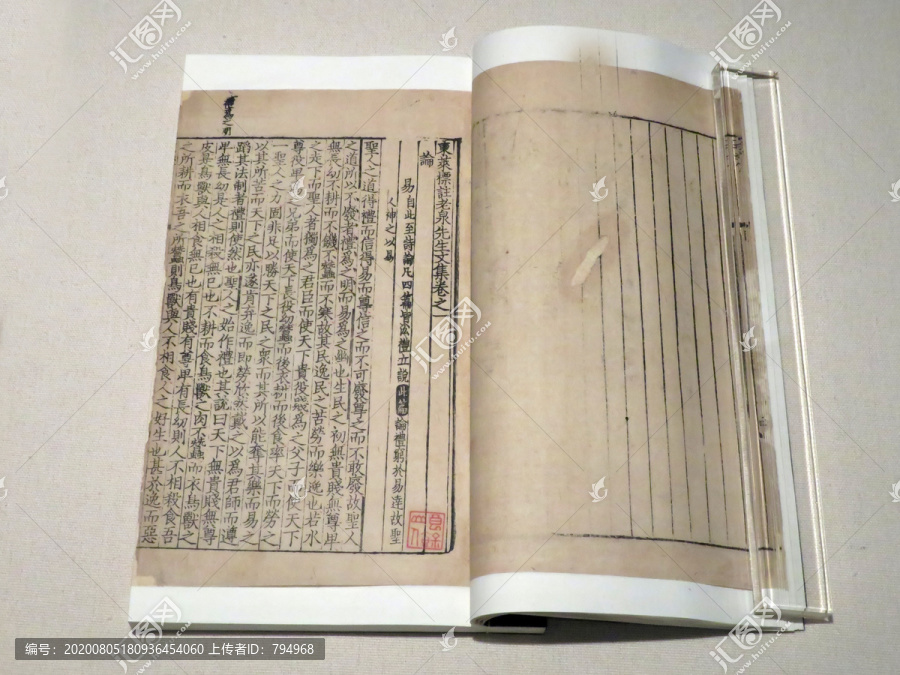 東萊標註老泉先生文集卷之一
論
易 自此至詩論凡四篇皆以禮立說此篇論禮窮於易達故聖
人神之以易
聖人之道得禮而信得易而尊信之而不可廢尊之而不敢廢故聖人
之道所以不廢者禮爲之明而易爲之幽也生民之初無貴賤無尊卑
無長幼不耕而不饑不蠶而不寒故其民逸民之苦勞而樂逸也若水
之走下而聖人者獨爲之君臣而使天下貴役賤爲之父子而使天下
尊役卑爲之兄弟而使天下長役幼蠶而後衣耕而後食率天下而勞之
一聖人之力固非足以勝天下之民之衆而其所以能奪其樂而易之
以其所苦而天下之民亦遂肯弃逸而即勞欣然戴之以爲君師而遵
蹈其法制者禮則使然也聖人之始作禮也其說曰天下無貴賤無尊
卑無長幼是人之相殺無已也不耕而食鳥獸之肉不蠶而衣鳥獸之
皮是鳥獸與人相食無已也有貴賤有尊卑有長幼則人不相殺食吾
之所耕而衣吾之所蠶則鳥獸與人不相食人之好生也甚於逸而惡
汇图网
编号: 20200805180936454060 上传者ID: 794968